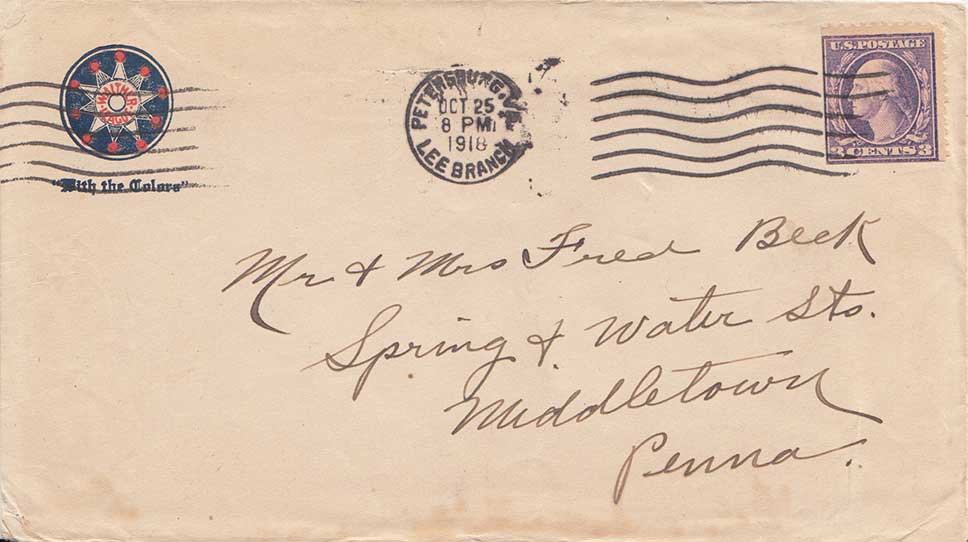 WALTHER LEAGUE
"With the Colors"
PETERSBURG, VA.
OCT 25
8 PM
1918
LEE BRANCH
U.S. POSTAGE
3 CENTS 3
Mr & Mrs Fred Beck
Spring & Water Sts.
Middletown
Penna.